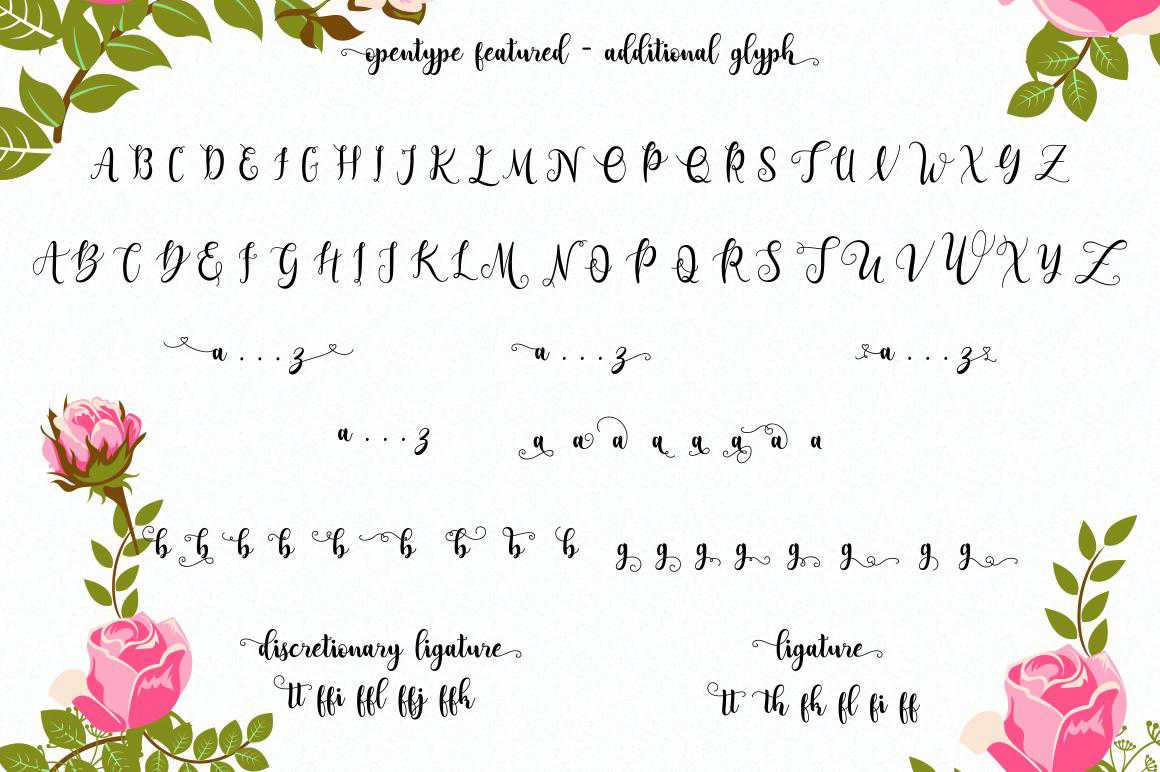 opentype featured - additional glyph
A B C D E F G H I J K L M N O P Q R S T U V W X Y Z
A B C D E F G H I J K L M N O P Q R S T U V W X Y Z
a . . . z a . . . z a . . . z
a . . . z a a a a a a a a
b b b b b b b b b g g g g g g g g
discretionary ligature ligature
tt ffi ffl ffj ffk tt th fk fl fi ff